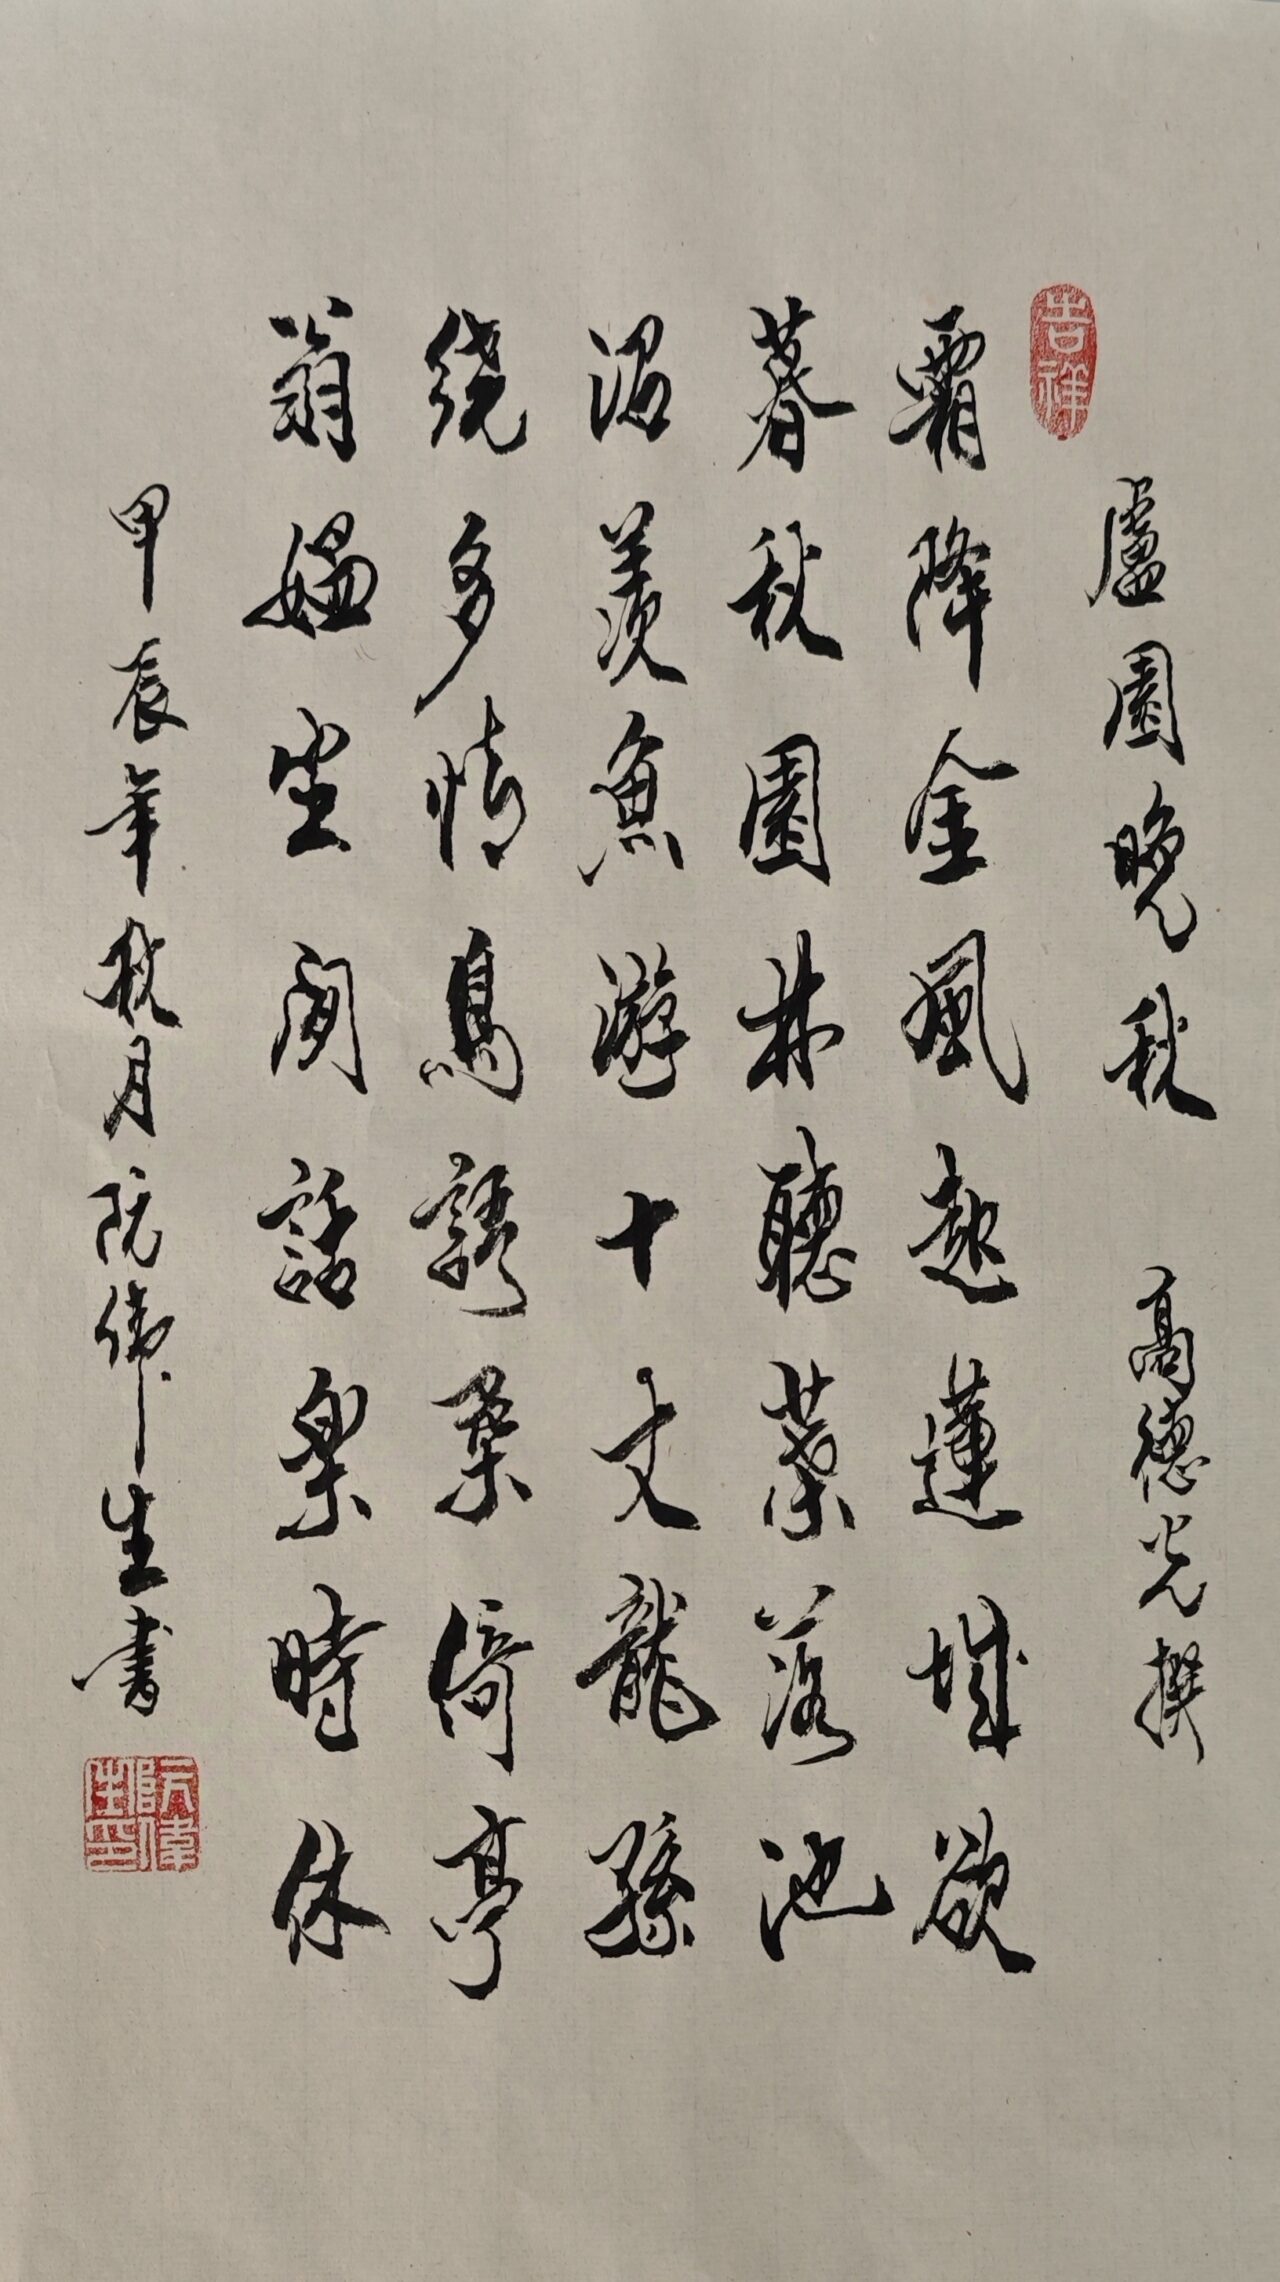 吉祥
盧園晚秋 高德光撰
霜降金風起蓮城欲
暮秋園林聽葉落池
沼羨魚游十丈龍孫
繞多情鳥誘柔倚亭
翁媼坐閑話樂時休
甲辰年秋月阮偉生書
阮偉生印